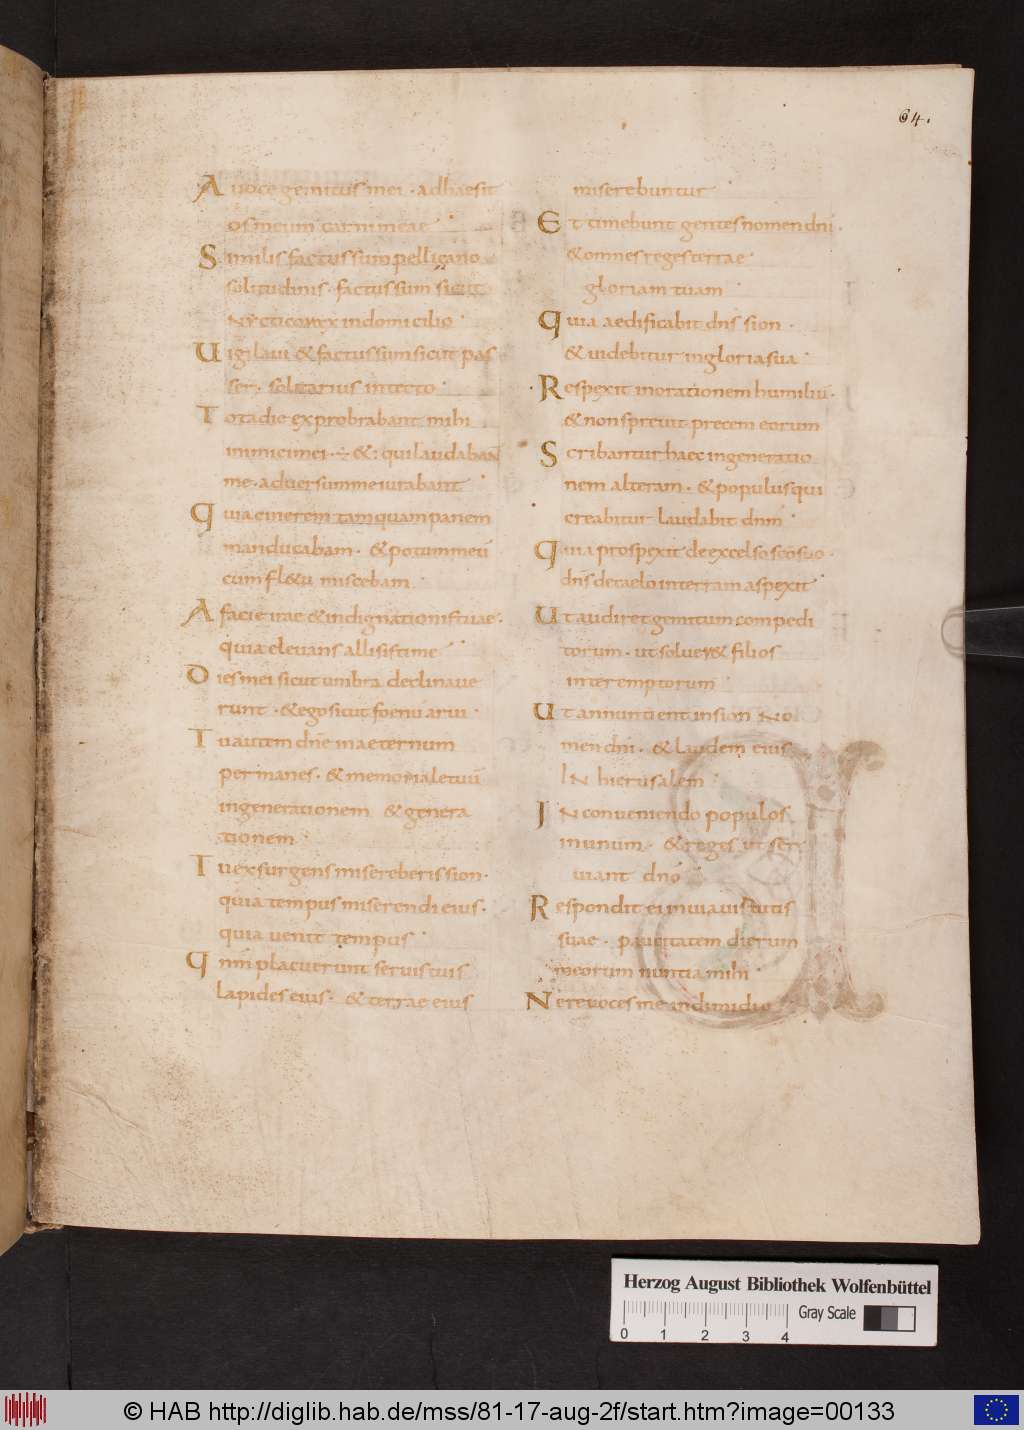 64.
A uoce gemitus mei · adhaesit
os meum carni meae ·
Similis factus sum pellicano
solitudinis · factus sum sicut
Nycticorax in domicilio ·
Uigilaui & factus sum sicut pas
ser · solitarius in tecto ·
Tota die exprobrabant mihi
inimici mei · ÷ &: qui laudaban̄
me · aduersum me iurabant ·
Quia cinerem tamquam panem
manducabam · & potum meū
cum fl&u miscebam ·
A facie irae & indignationis tuae ·
quia eleuans allisisti me ·
Dies mei sicut umbra declinaue
runt · & ego sicut foenū arui ·
Tu autem dn̄e in aeternum
permanes · & memoriale tuū
in generationem & genera
tionem ·
Tu exsurgens misereberis sion ·
quia tempus miserendi eius ·
quia uenit tempus ·
Qn̄m placuerunt seruis tuis
lapides eius · & terrae eius
miserebuntur ·
Et timebunt gentes nomen dn̄i ·
& omnes reges terrae ·
gloriam tuam ·
Quia aedificabit dn̄s sion ·
& uidebitur in gloria sua ·
Respexit in orationem humiliū ·
& non spreuit precem eorum
Scribantur haec in generatio
nem alteram · & populus qui
creabitur laudabit dn̄m ·
Quia prospexit de excelso sc̄o suo ·
dn̄s de caelo in terram aspexit ·
Ut audiret gemitum compedi
torum · ut solueret filios
interemptorum ·
Ut annuntient in sion No
men dn̄i · & laudem eius
IN hierusalem ·
IN conueniendo populos
in unum · & reges ut ser
uiant dn̄o ·
Respondit ei in uia uirtutis
suae · paucitatem dierum
meorum nuntia mihi ·
Ne reuoces me in dimidio
Herzog August Bibliothek Wolfenbüttel
Gray Scale
0 1 2 3 4
© HAB http://diglib.hab.de/mss/81-17-aug-2f/start.htm?image=00133